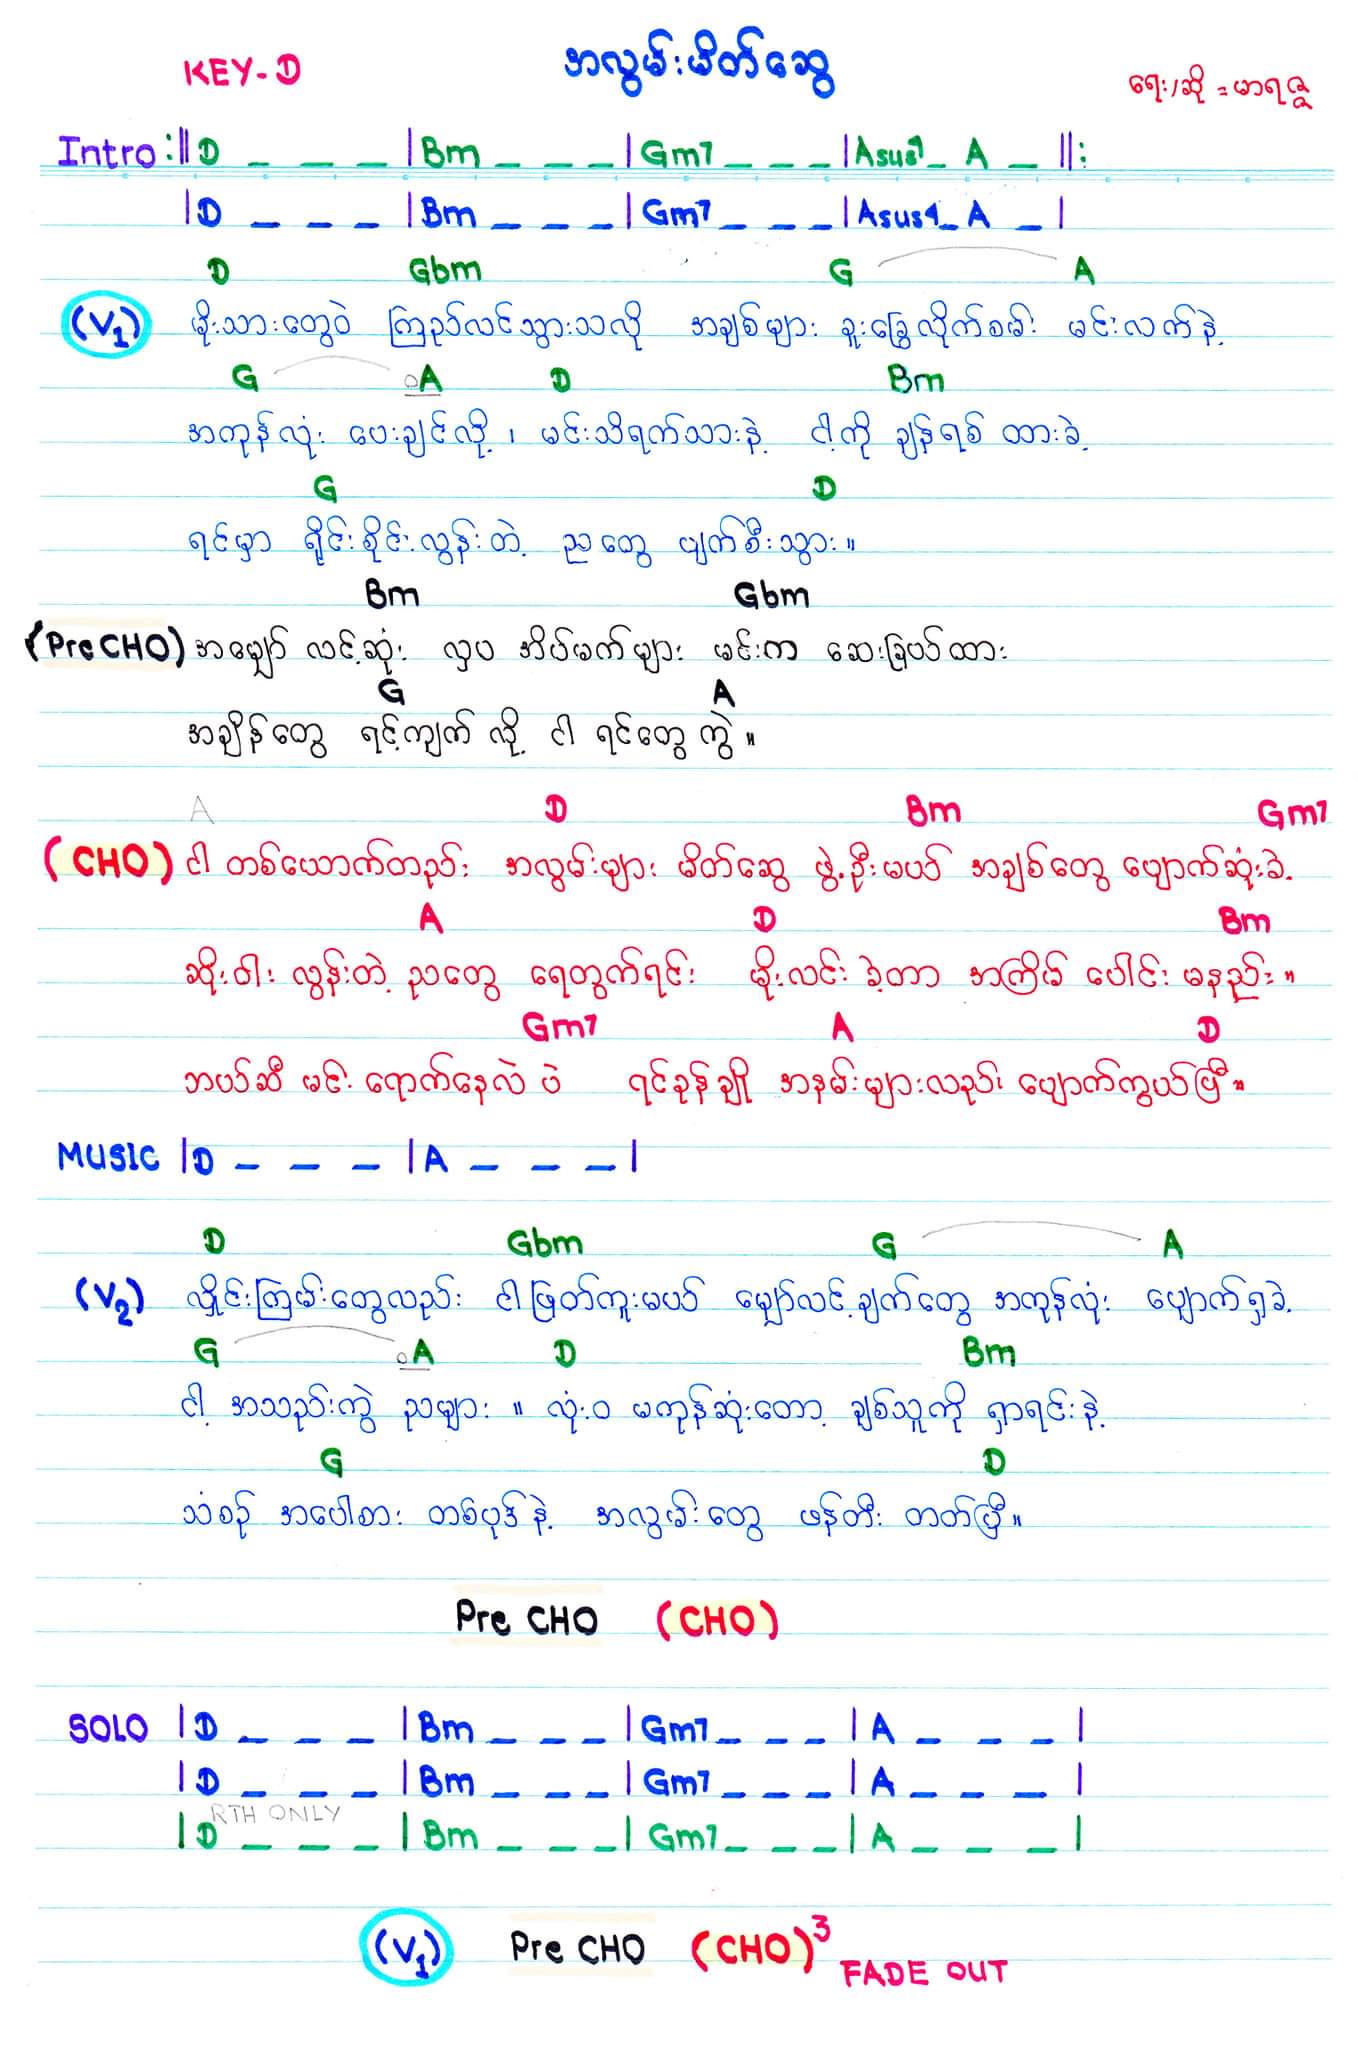 KEY-D အလွမ်းမိတ်ဆွေ ရေး/ဆို = မာရဇ္ဇ
Intro :|| D _ _ _ | Bm _ _ _ | Gm7 _ _ _ | Asus4 _ A _ ||:
| D _ _ _ | Bm _ _ _ | Gm7 _ _ _ | Asus4 _ A _ |
D Gbm G A
(V1) မိုးသားတွေဝဲ ကြည်လင်သွားသလို အချစ်များ ခူးခြွေလိုက်စမ်း မင်းလက်နဲ့
G A D Bm
အကုန်လုံး ပေးချင်လို့ ၊ မင်းသိရက်သားနဲ့ ငါ့ကို ချန်ရစ် ထားခဲ့
G D
ရင်မှာ ရိုင်းစိုင်းလွန်းတဲ့ ညတွေ ပျက်စီးသွား။
Bm Gbm
(Pre CHO) အမျှော် လင့်ဆုံး လှပ အိပ်မက်များ မင်းက ဆေးခြယ်ထား
G A
အချိန်တွေ ရင့်ကျက် လို့ ငါ ရင်တွေ ကွဲ။
A D Bm Gm7
(CHO) ငါ တစ်ယောက်တည်း အလွမ်းများ မိတ်ဆွေ ဖွဲ့ဦးမယ် အချစ်တွေ ပျောက်ဆုံးခဲ့
A D Bm
ဆိုးဝါး လွန်းတဲ့ ညတွေ ရေတွက်ရင်း မိုးလင်း ခဲ့တာ အကြိမ် ပေါင်း မနည်း။
Gm7 A D
ဘယ်ဆီ မင်း ရောက်နေလဲ ပဲ ရင်ခုန်ချို အနမ်းများလည်း ပျောက်ကွယ်ပြီ။
MUSIC | D _ _ _ | A _ _ _ |
D Gbm G A
(V2) လှိုင်းကြမ်းတွေလည်း ငါဖြတ်ကူးမယ် မျှော်လင့်ချက်တွေ အကုန်လုံး ပျောက်ရှခဲ့
G A D Bm
ငါ့ အသည်းကွဲ ညများ ။ လုံးဝ မကုန်ဆုံးတော့ ချစ်သူကို ရှာရင်းနဲ့
G D
သံစဉ် အပေါစား တစ်ပုဒ်နဲ့ အလွမ်းတွေ ဖန်တီး တတ်ပြီ။
Pre CHO (CHO)
SOLO | D _ _ _ | Bm _ _ _ | Gm7 _ _ _ | A _ _ _ |
| D _ _ _ | Bm _ _ _ | Gm7 _ _ _ | A _ _ _ |
RTH ONLY
| D _ _ _ | Bm _ _ _ | Gm7 _ _ _ | A _ _ _ |
(V1) Pre CHO (CHO)3 FADE OUT